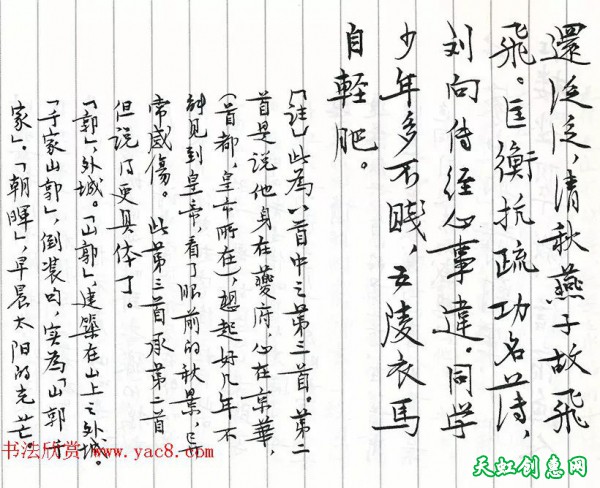 還泛泛，清秋燕子故飛
飛。匡衡抗疏功名薄，
刘向传经心事違。同学
少年多不賤，五陵衣馬
自輕肥。
「註」此為八首中之第三首。第二
首是说他身在夔府，心在京華，
(首都，皇帝所在)，想起好几年不
能见到皇帝，看了眼前的秋景，异
常感傷。此第三首承第二首
但说得更具体了。
「郭」，外城。「山郭」，建築在山上之外城。
「千家山郭」，倒裝句，实為「山郭千
家」。「朝暉」，早晨太阳的光芒。
书法欣赏www.yac8.com
天虹创意网